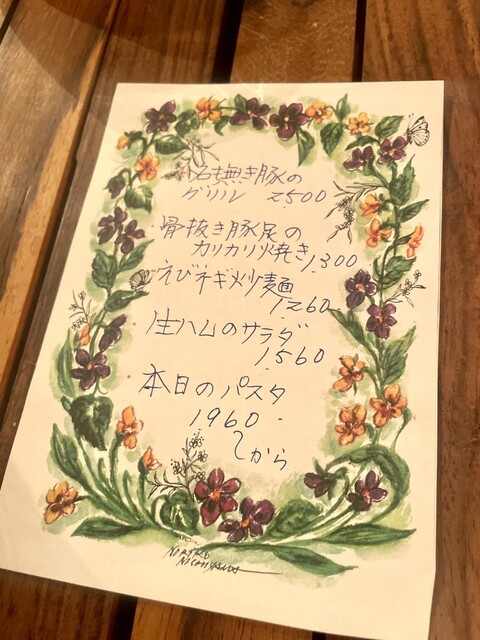 名も無き豚の
グリル 2500
骨抜き豚足の
カリカリ焼き 1,300
えびネギ炒麺
1,260
生ハムのサラダ
1,560
本日のパスタ
1960
〜から
NORIKO